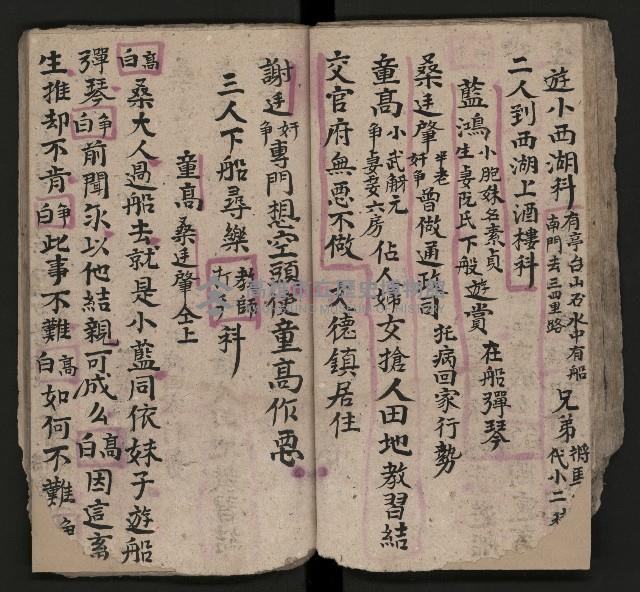 遊小西湖科 有亭台山石水中有船 南門去三四里路 兄弟 代小二
二人到西湖上酒樓科
藍鴻 小胞妹名素貞 生妻阮氏 下船遊賞 在船彈琴
桑廷肇 半老 奸爭 曾做通政司 托病回家行勢
童高 小武解元 爭妻妾六房 佔人婦女搶人田地教習結
交官府無悪不做 人德鎮居住
謝廷 奸爭 專門想空頭俾童高作悪
三人下船尋樂 教師 打 科
童高 桑廷肇仝上
高白 桑大人過船去就是小藍同依妹子遊船
彈琴 爭白 前聞永以他結親可成么 高白 因這畜
生推却不肯 爭白 此事不難 高白 如何不難 爭